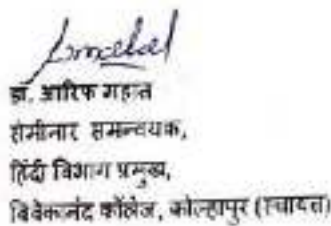 डा. आरिफ महात
सेमीनार समन्वयक,
हिंदी विभाग प्रमुख,
विवेकानंद कॉलेज, कोल्हापुर (स्वायत्त)